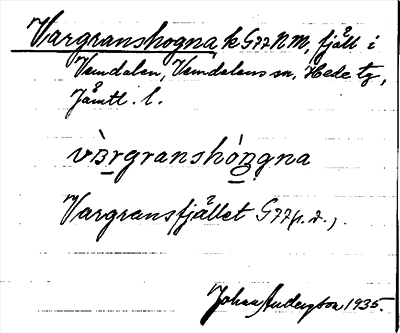 Vargranshogna k G77NM, fjäll i
Vemdalen, Vemdalens sn, Hede tg,
Jämtl. l.
vàrgranshógna
Vargransfjället G77(n.d.).
Johan Anderson 1935.